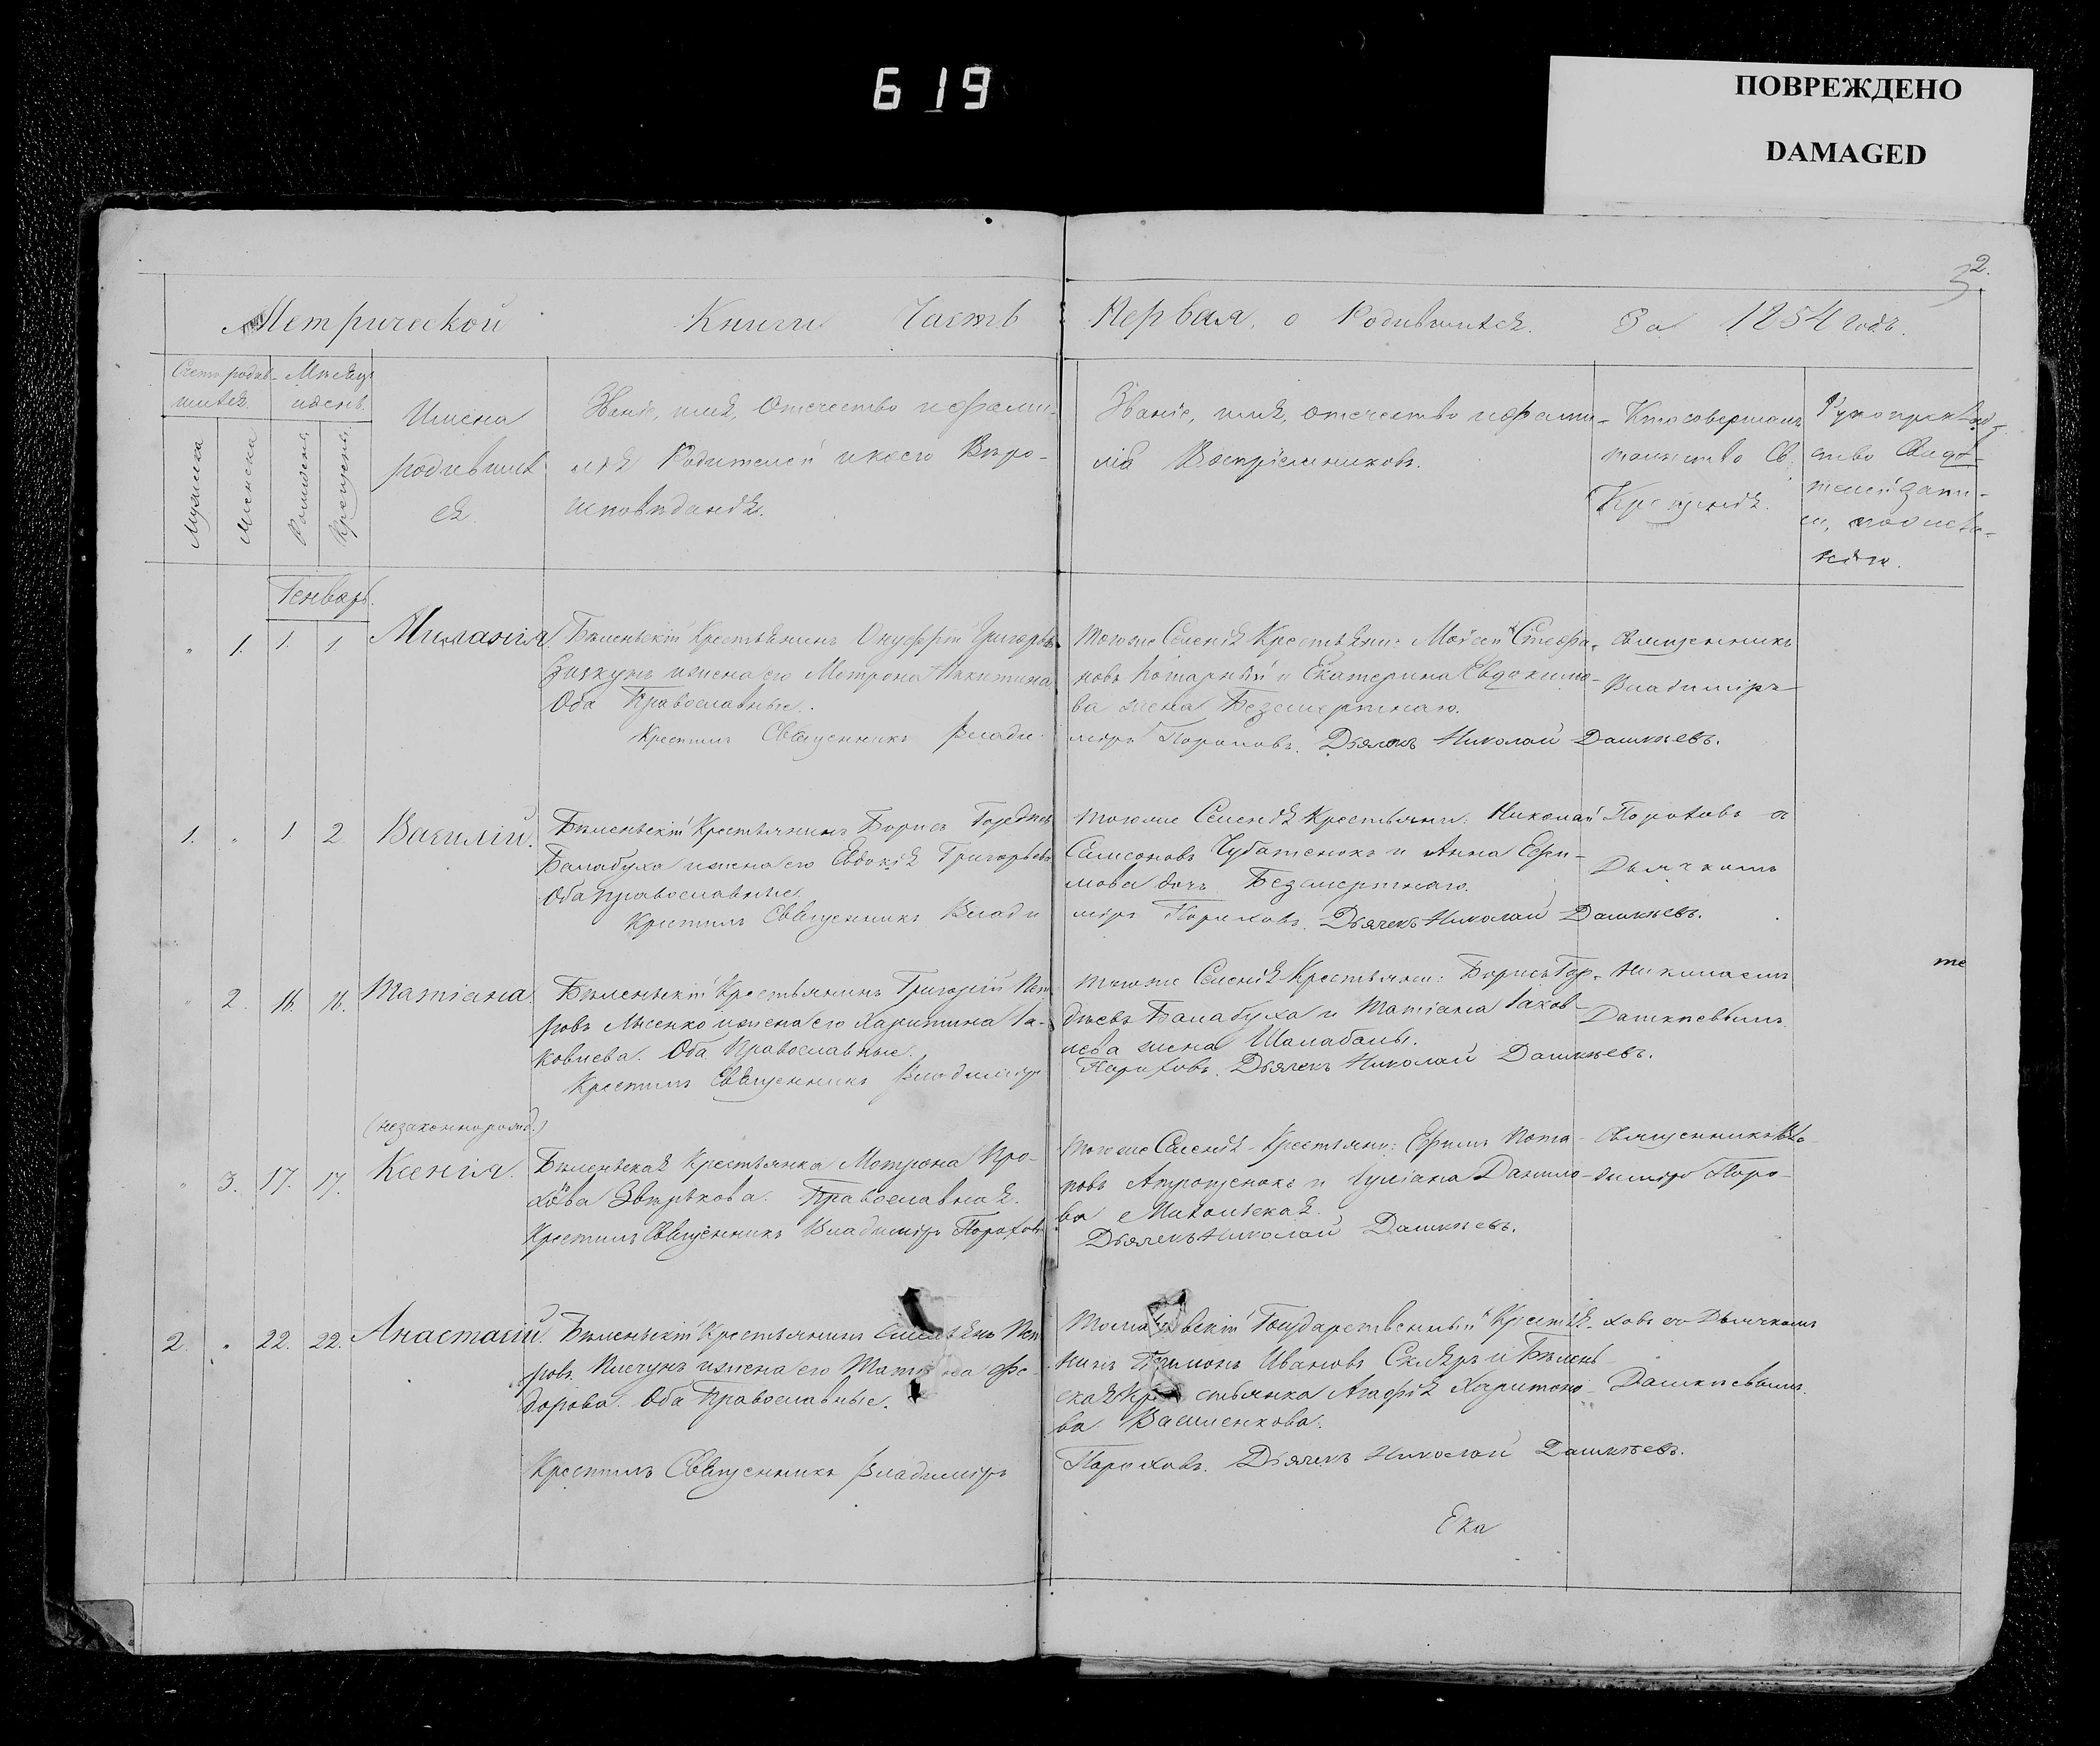 619
ПОВРЕЖДЕНО
DAMAGED
2.
3
Метрической Книги Часть Первая, о Родившихся. За 1854 годъ.
Счетъ родив-
шихся.
Мѣсяцъ
и день.
Мужеска
Женска
Рожденiя
Крещенiя
Имена
родивших
ся.
Званiе, имя, Отечество и фами-
лiя Родителей и коего Вѣро-
исповѣданiя.
Званiе, имя, отечество и фами-
лiя Воспрiемниковъ.
Кто совершалъ
таинство Св.
Крещенiя.
Рукоприклад-
ство Свидѣ-
телей запи-
си, по жела-
нiю.
Генварь.
" 1. 1. 1. Миланiя.
Бѣленьскiй Крестьянинъ Онуфрiй Григорьевъ
и жена его Мотрона Никитина
Оба Православные.
Крестилъ Священникъ Влади-
Тогоже Селенiя Крестьяни: Мойсей Стефа-
новъ Потарный и Екатерина Евдокимо-
ва жена Безсмертнаго.
мiръ Пороховъ. Дьячекъ Николай Дашкѣевъ.
Священникъ
Владимiръ
1. " 1 2 Василiй.
Бѣленьскiй Крестьянинъ Борисъ Гордѣевъ
Балабуха и жена его Евдокiя Григорьева
Оба православные.
Крестилъ Священникъ Влади
Тогоже Селенiя Крестьяни: Николай
Самсоновъ Чубатенокъ и Анна Ефи-
мова дочь Безсмертнаго.
мiръ Пороховъ. Дьячекъ Николай Дашкѣевъ.
Пороховъ съ
Дьячкомъ
" 2. 16. 16. Татiана.
Бѣленьскiй Крестьянинъ Григорiй Пет
ровъ Лысенко и жена его Харитина Iа-
ковлева. Оба Православные.
Крестилъ Священникъ Владимiръ
Тогоже Селенiя Крестьяни: Борисъ Гор-
дѣевъ Балабуха и Татiана Iаков-
лева жена Шалабалы.
Пороховъ. Дьячекъ Николай Дашкѣевъ.
Николаемъ
Дашкѣевымъ.
те
(незаконнорожд.)
" 3. 17. 17. Ксенiя.
Бѣленьская Крестьянка Мотрона Про-
хова Звѣрькова. Православная.
Крестилъ Священникъ Владимiръ Пороховъ
Тогоже Селенiя Крестьяни: Ефимъ Пота-
повъ и Iулiана Данило-
ва
Дьячекъ Николай Дашкѣевъ.
Священникъ Вла-
димiръ Поро-
2. " 22. 22. Анастасiй.
Бѣленьскiй Крестьянинъ Емельянъ Пет
ровъ и жена его Татiана Фе-
дорова. Оба Православные.
Крестилъ Священникъ Владимiръ
Государственный Крестья-
нинъ Филимонъ Ивановъ Скляръ и Бѣлень-
ская Крестьянка Агафiя Харитоно-
ва Василенкова.
Пороховъ. Дьячекъ Николай Дашкѣевъ.
ховъ съ Дьячкомъ
Дашкѣевымъ.
Ека